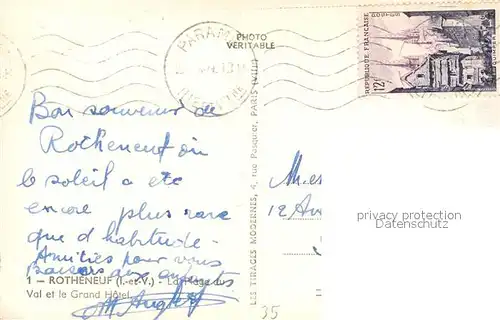 PHOTO
VERITABLE
PARAMÉ
REPUBLIQUE FRANÇAISE
POSTES
12F
Bon souvenir de
Rotheneuf où
le soleil a été
encore plus rare
que d'habitude -
Amitiés pour vous
Baisers aux enfants
1 - ROTHÉNEUF (I.-et-V.) - La Plage du
Val et le Grand Hôtel
LES TIRAGES MODERNES, 4, rue Pasquier, PARIS (VIIIe)
12 Av
privacy protection
Datenschutz
35